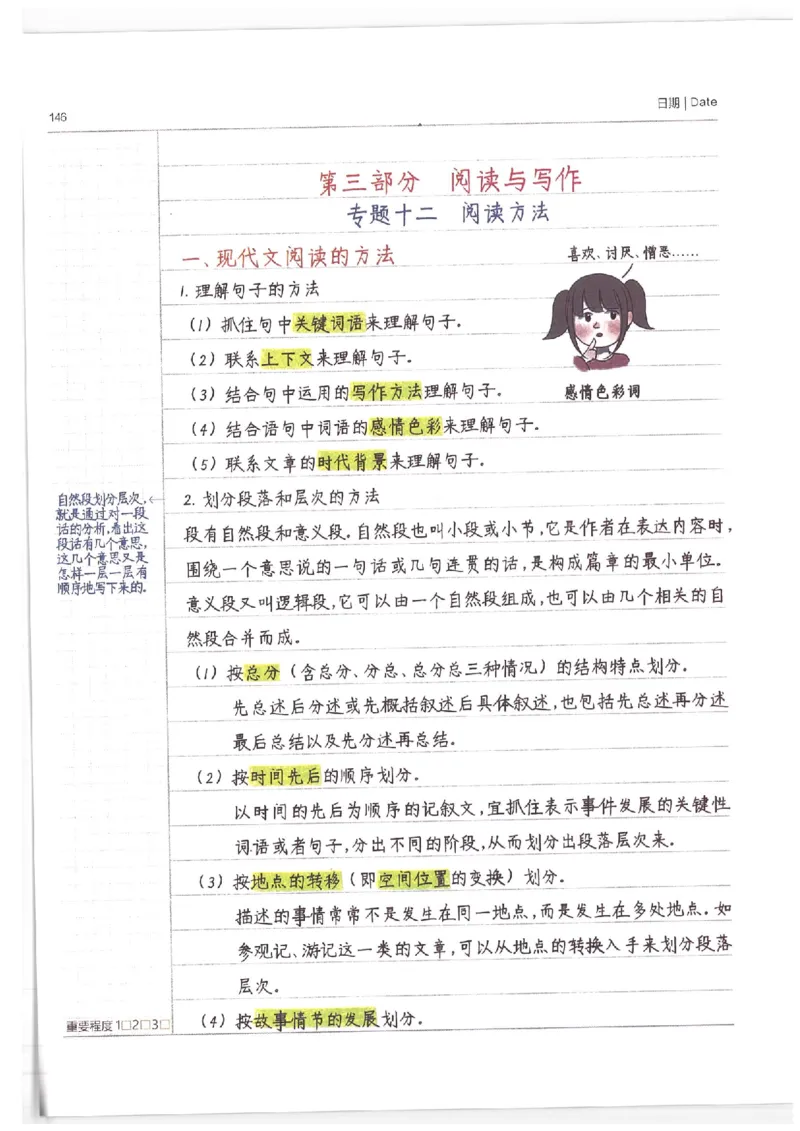 146
日期 | Date
第三部分 阅读与写作
专题十二 阅读方法
一、现代文阅读的方法
喜欢、讨厌、憎恶……
1. 理解句子的方法
(1) 抓住句中关键词语来理解句子.
(2) 联系上下文来理解句子.
(3) 结合句中运用的写作方法理解句子.
感情色彩词
(4) 结合语句中词语的感情色彩来理解句子.
(5) 联系文章的时代背景来理解句子.
自然段划分层次,
就是通过对一段
话的分析,看出这
段话有几个意思,
这几个意思又是
怎样一层一层有
顺序地写下来的.
2. 划分段落和层次的方法
段有自然段和意义段.自然段也叫小段或小节,它是作者在表达内容时,
围绕一个意思说的一句话或几句连贯的话,是构成篇章的最小单位.
意义段又叫逻辑段,它可以由一个自然段组成,也可以由几个相关的自
然段合并而成.
(1) 按总分(含总分、分总、总分总三种情况)的结构特点划分.
先总述后分述或先概括叙述后具体叙述,也包括先总述再分述
最后总结以及先分述再总结.
(2) 按时间先后的顺序划分.
以时间的先后为顺序的记叙文,宜抓住表示事件发展的关键性
词语或者句子,分出不同的阶段,从而划分出段落层次来.
(3) 按地点的转移(即空间位置的变换)划分.
描述的事情常常不是发生在同一地点,而是发生在多处地点.如
参观记、游记这一类的文章,可以从地点的转换入手来划分段落
层次.
(4) 按故事情节的发展划分.
重要程度 1□2□3□